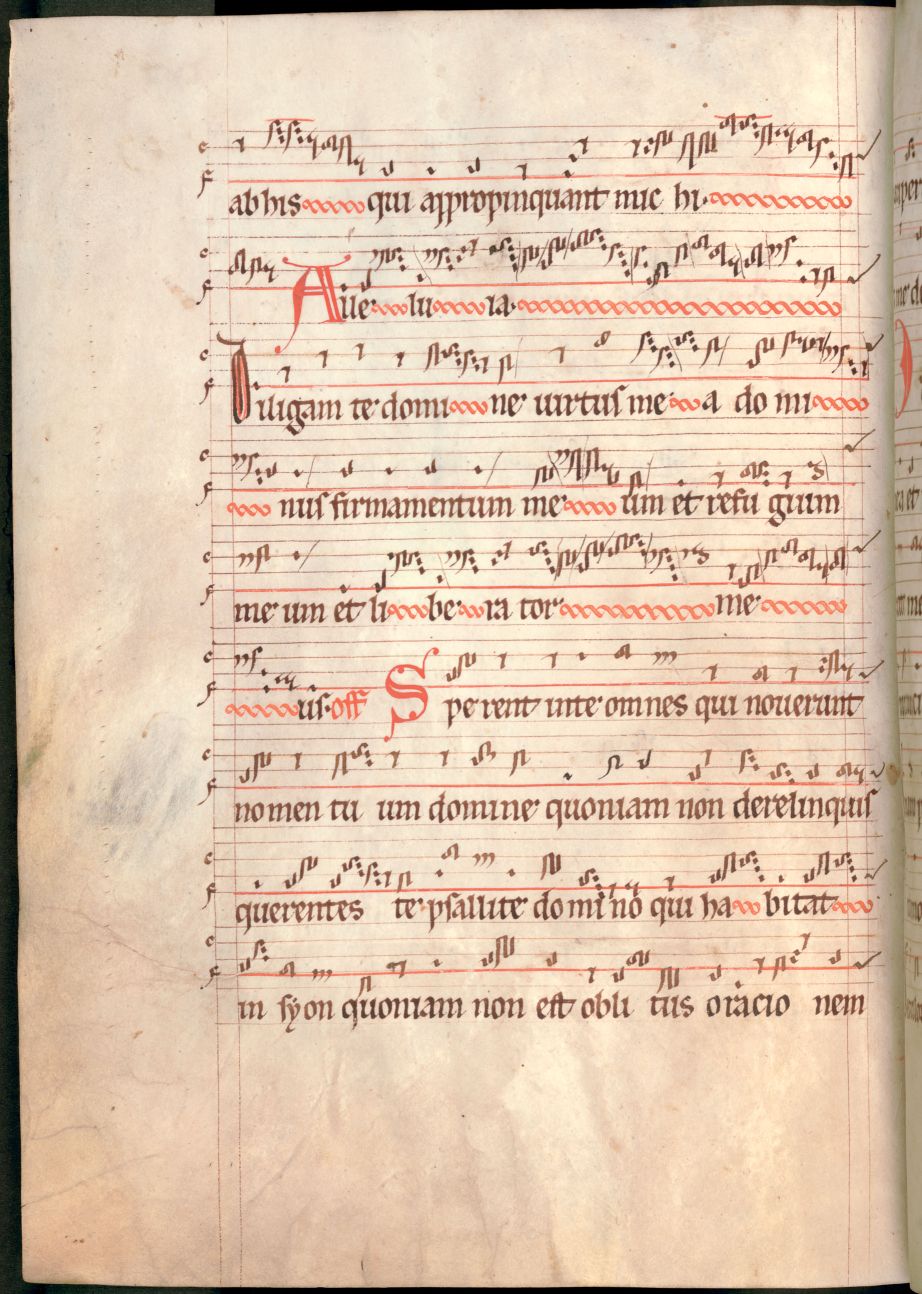 ab his qui appropinquant mic hi.
Alle lu ia.
Diligam te domi ne uirtus me a do mi
nus firmamentum me um et refu gium
me um et li be ra tor me
us. off Spe rent in te omnes qui nouerunt
nomen tu um domine quoniam non derelinquis
querentes te psallite domino qui ha bitat
in syon quoniam non est obli tus oracio nem